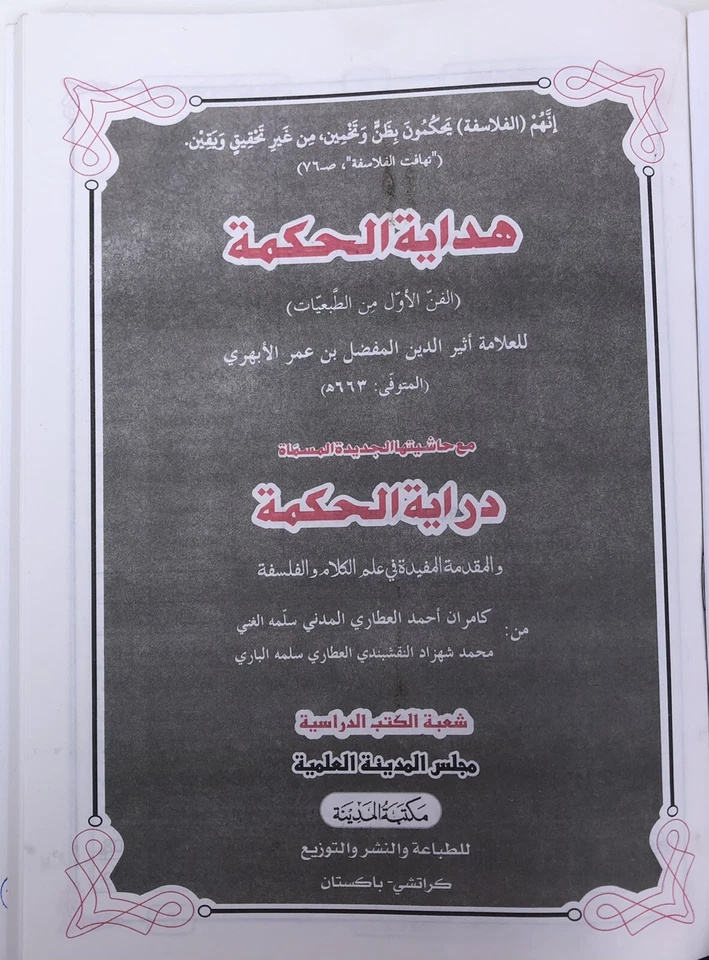 إنَّهُمْ (الفلاسفة) يَحكُمُونَ بِظَنٍّ وَتَخْمِين، مِن غَيرِ تَحْقِيقٍ وَيَقِيْن.
("تهافت الفلاسفة"، صـ٧٦)
هداية الحكمة
(الفنّ الأوّل مِن الطَّبعيّات)
للعلامة أثير الدين المفضل بن عمر الأبهري
(المتوفّى: ٦٦٣ھ)
مع حاشيتها الجديدة المسمّاة
دراية الحكمة
والمقدمة المفيدة في علم الكلام والفلسفة
من: كامران أحمد العطاري المدني سلّمه الغني
محمد شهزاد النقشبندي العطاري سلمه الباري
شعبة الكتب الدراسية
مجلس المدينة العلمية
مكتبة المدينة
للطباعة والنشر والتوزيع
كراتشي- باكستان